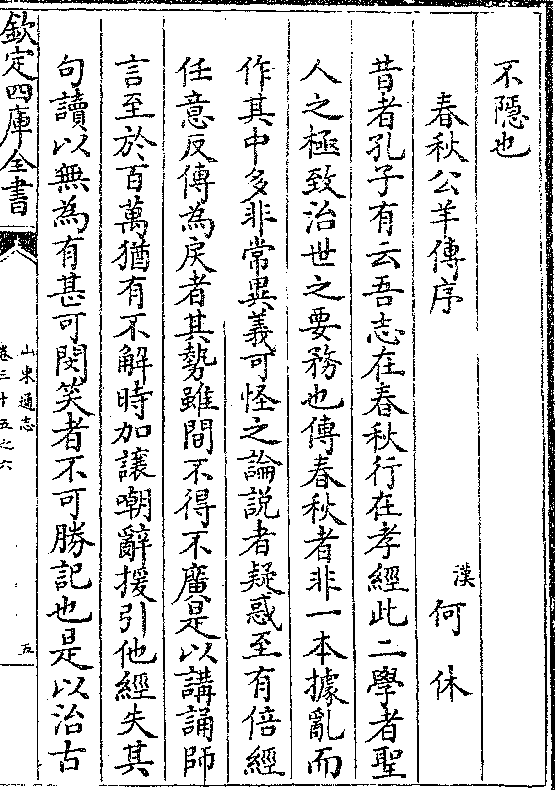 不隱也
春秋公羊傳序　漢何休
昔者孔子有云吾志在春秋行在孝經此二學者聖
人之極致治世之要務也傳春秋者非一本據亂而
作其中多非常異義可怪之論説者疑惑至有倍經
任意反傳為戾者其勢雖間不得不廣是以講誦師
言至於百萬猶有不解時加讓嘲辭援引他經失其
句讀以無為有甚可閔笑者不可勝記也是以治古
欽定四庫全書
山東通志
卷三十五之六
五